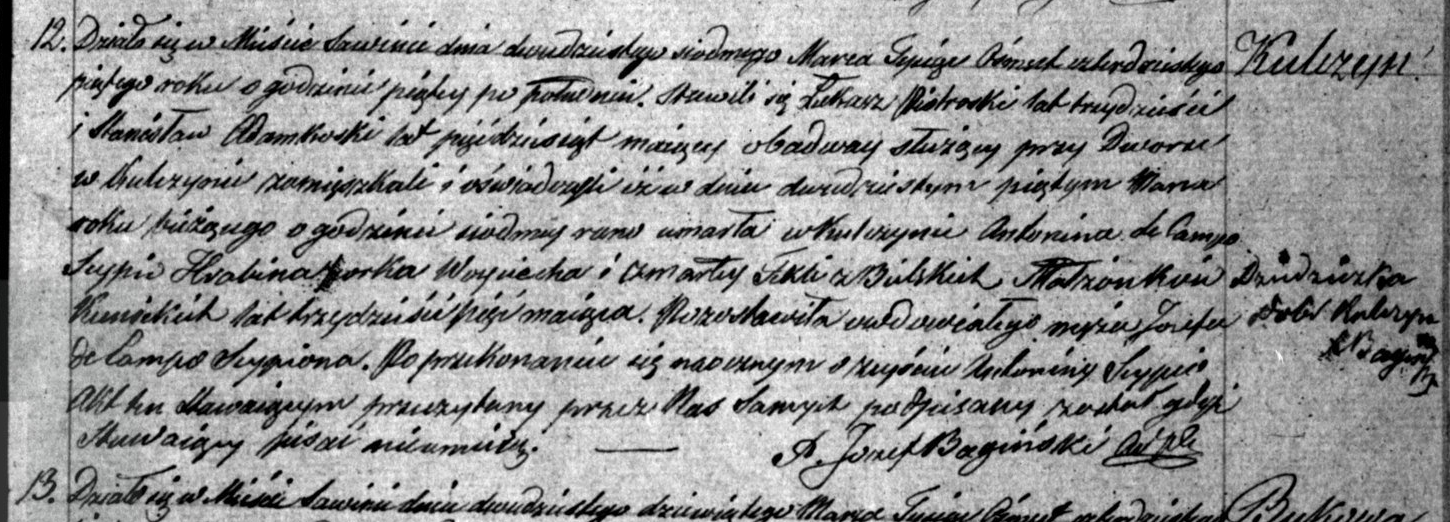 12. Działo się w Mieście Sawinie dnia dwudziestego siodmego Marca Tysiąc Ośmset czterdziestego Kulczyn.
piątego roku o godzinie piątey po południu. Stawili się Łukasz Piotroski lat trzydzieści
i Stanisław Adamkoski lat pięćdziesiąt maiący obadway służący przy Dworze
w Kulczynie zamięszkali i oświadczyli iż w dniu dwudziestym piątym Marca
roku bieżącego o godzinie siodmey rano umarła w Kulczynie Antonina de Campo
Scypio Hrabina corka Woyciecha i zmarłey Tekli z Bielskich Małżonków Dziedziczka
Kunickich lat trzydzieści pięć maiąca. Pozostawiła owdowiałego męża Jozefa dobr Kulczyn
de Campo Scypiona. Po przekonaniu się naocznym o zeyściu Antoniny Scypio
Akt ten Stawaiącym przeczytany przez Nas Samych podpisany został gdyż
Stawaiący pisać nieumieią. X. Jozef Bagiński
13. Działo się w Mieście Sawinie dnia dwudziestego dziewiątego Marca Tysiąc Ośmset Bukowa